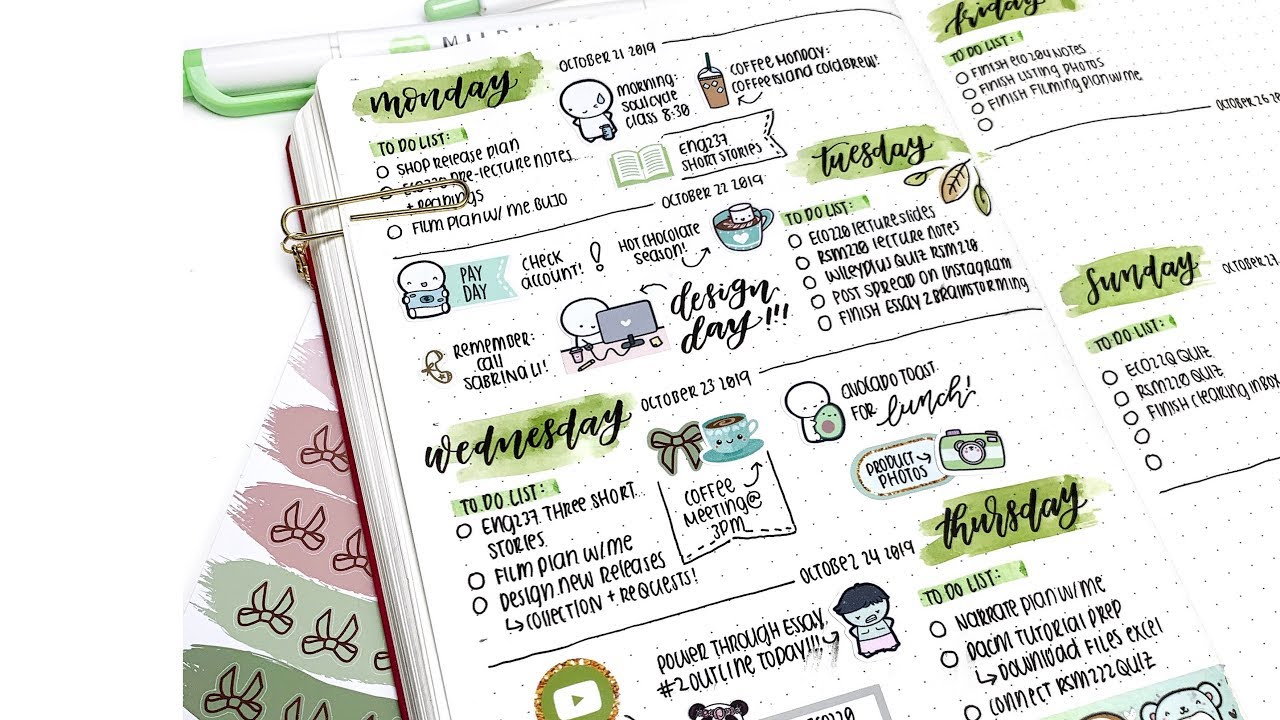 MILDL
monday
OCTOBER 21 2019
MORNING:
SOULCYCLE
CLASS 8:30
COFFEE MONDAY:
COFFEE ISLAND COLD BREW!
TO DO LIST:
SHOP RELEASE PLAN
ECO220 PRE-LECTURE NOTES
+ READINGS
FILM PLAN W/ ME BUJO
ENG237
SHORT STORIES
OCTOBER 22 2019
tuesday
TO DO LIST:
ECO220 LECTURE SLIDES
RSM220 LECTURE NOTES
WILEYPLUS QUIZ RSM220
POST SPREAD ON INSTAGRAM
FINISH ESSAY 2 BRAINSTORMING
PAY
DAY
CHECK
ACCOUNT!
!
HOT CHOCOLATE
SEASON!
design
day!!!
REMEMBER:
CALL
SABRINA LI!
wednesday
OCTOBER 23 2019
TO DO LIST:
ENG237 THREE SHORT
STORIES
FILM PLAN W/ME
DESIGN NEW RELEASES
↳ COLLECTION + REQUESTS!
COFFEE
MEETING @
3PM
AVOCADO TOAST
FOR lunch!
PRODUCT
PHOTOS
OCTOBER 24 2019
thursday
TO DO LIST:
NARRATE PLAN W/ME
DACM TUTORIAL PREP
↳ DOWNLOAD FILES EXCEL
CONNECT RSM222 QUIZ
POWER THROUGH ESSAY
#2 OUTLINE TODAY!!!
ECO220
friday
TO DO LIST:
FINISH ECO204 NOTES
FINISH LISTING PHOTOS
FINISH FILMING PLAN W/ME
OCTOBER 26 20
sunday
OCTOBER 27
TO DO LIST:
ECO220 QUIZ
RSM220 QUIZ
FINISH CLEARING INBOX